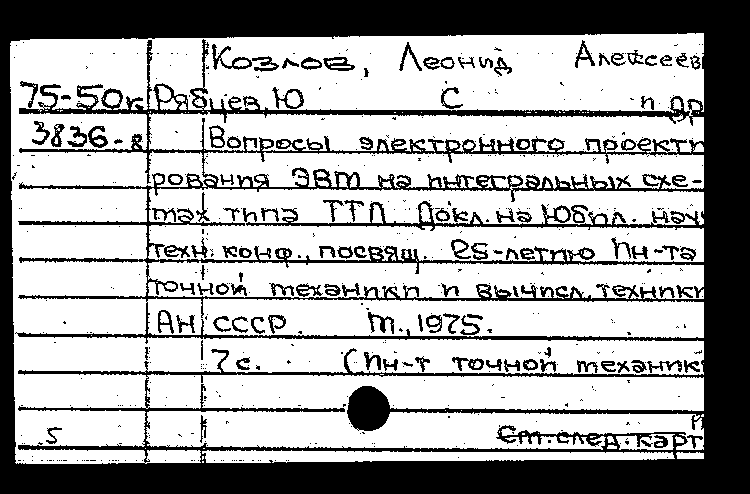 Козлов, Леонид Алексеев
75-50к Рябцев, Ю С и др
3836-в Вопросы электронного проекти
рования ЭВМ на интегральных схе-
мах типа ТТЛ. Докл. на Юбил. науч
техн. конф., посвящ. 25-летию Ин-та
точной механики и вычисл. техники
АН СССР. М., 1975.
7 с. (Ин-т точной механики
5 См. след. карт